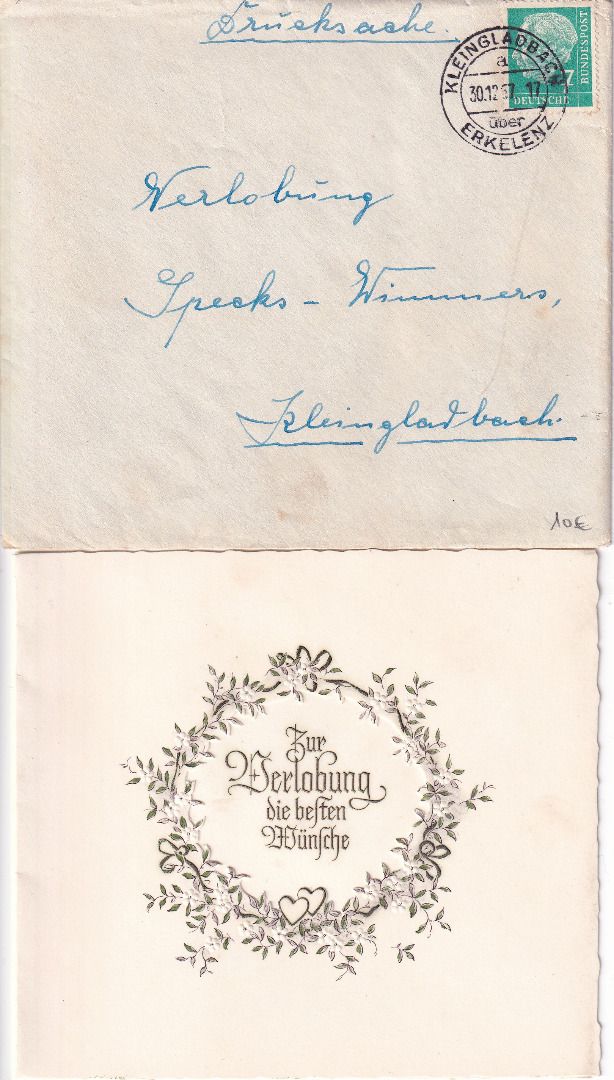 Drucksache.
KLEINGLADBACH
a
30.12.57. 17
über
ERKELENZ
7
DEUTSCHE
BUNDESPOST
Verlobung
Specks - Wimmers,
Kleingladbach.
10€
Zur
Verlobung
die besten
Wünsche